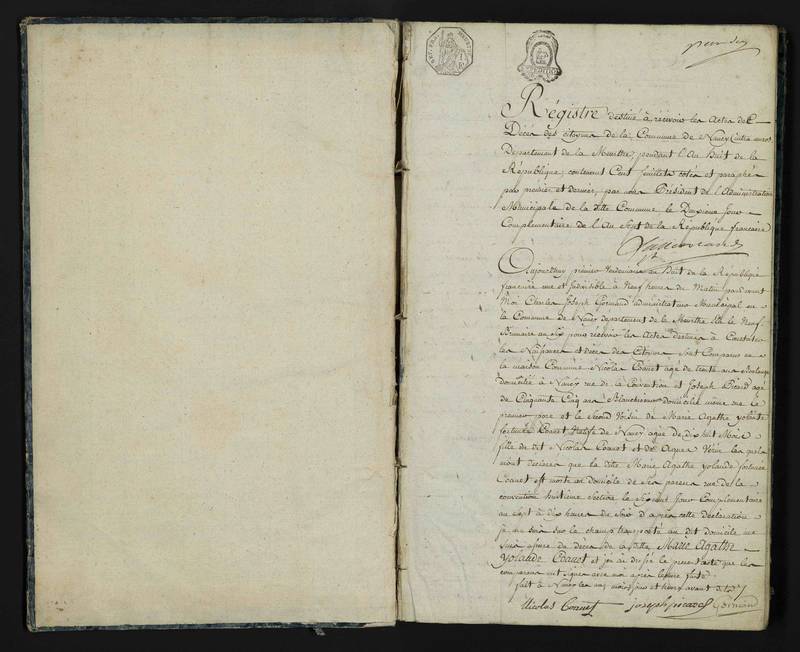 Régistre destiné à récevoir les Actes de
Décès des citoyens de la Commune de Nancy
Departement de la Meurthe, pendant l'An Huit de la
République, contenant Cent feuillets cotés et paraphés
par premier et dernier, par nous Président de l'Administration
Municipale de la dite Commune, le Deuxieme Jour
Complementaire de l'An Sept de la République francaise
Aujourd'huy premier Vendemiaire an Huit de la République
francaise une et Indivisible à Neuf heures du Matin pardevant
Moi Charles Joseph Germand administrateur Municipal en
la Commune de Nancy departement de la Meurthe Elu le Neuf
Brumaire an Six pour récévoir les Actes destinés à Constater
les Naissances et décès des Citoyens Sont Comparus en
la maison Commune Nicolas Counet age de trente ans
domicilié à Nancy rue de la Convention et Joseph Picard agé
de Cinquante Cinq ans Blanchisseur domicilié même rue le
premier pere et le Second Voisin de Marie Agathe yolande
fortunée Counet Native de Nancy agée de dixhuit Mois
fille du dit Nicolas Counet et de Agnes les quels
m'ont declarés que la ditte Marie Agathe yolande fortunée
Counet est morte au domicile de Ses parens rue de la
convention huitieme Section le Sixieme Jour Complementaire
an Sept à dix heures du Soir d'après cette declaration
je me suis sur le champ transporté au dit domicile me
suis assuré du décès de la ditte Marie Agathe
yolande Counet et j'en ai dressé le present acte que les
comparans ont signés avec moi après lecture faite
fait à Nancy les an, mois, jour et heure avant dits
Nicolas Counet joseph picard Germand